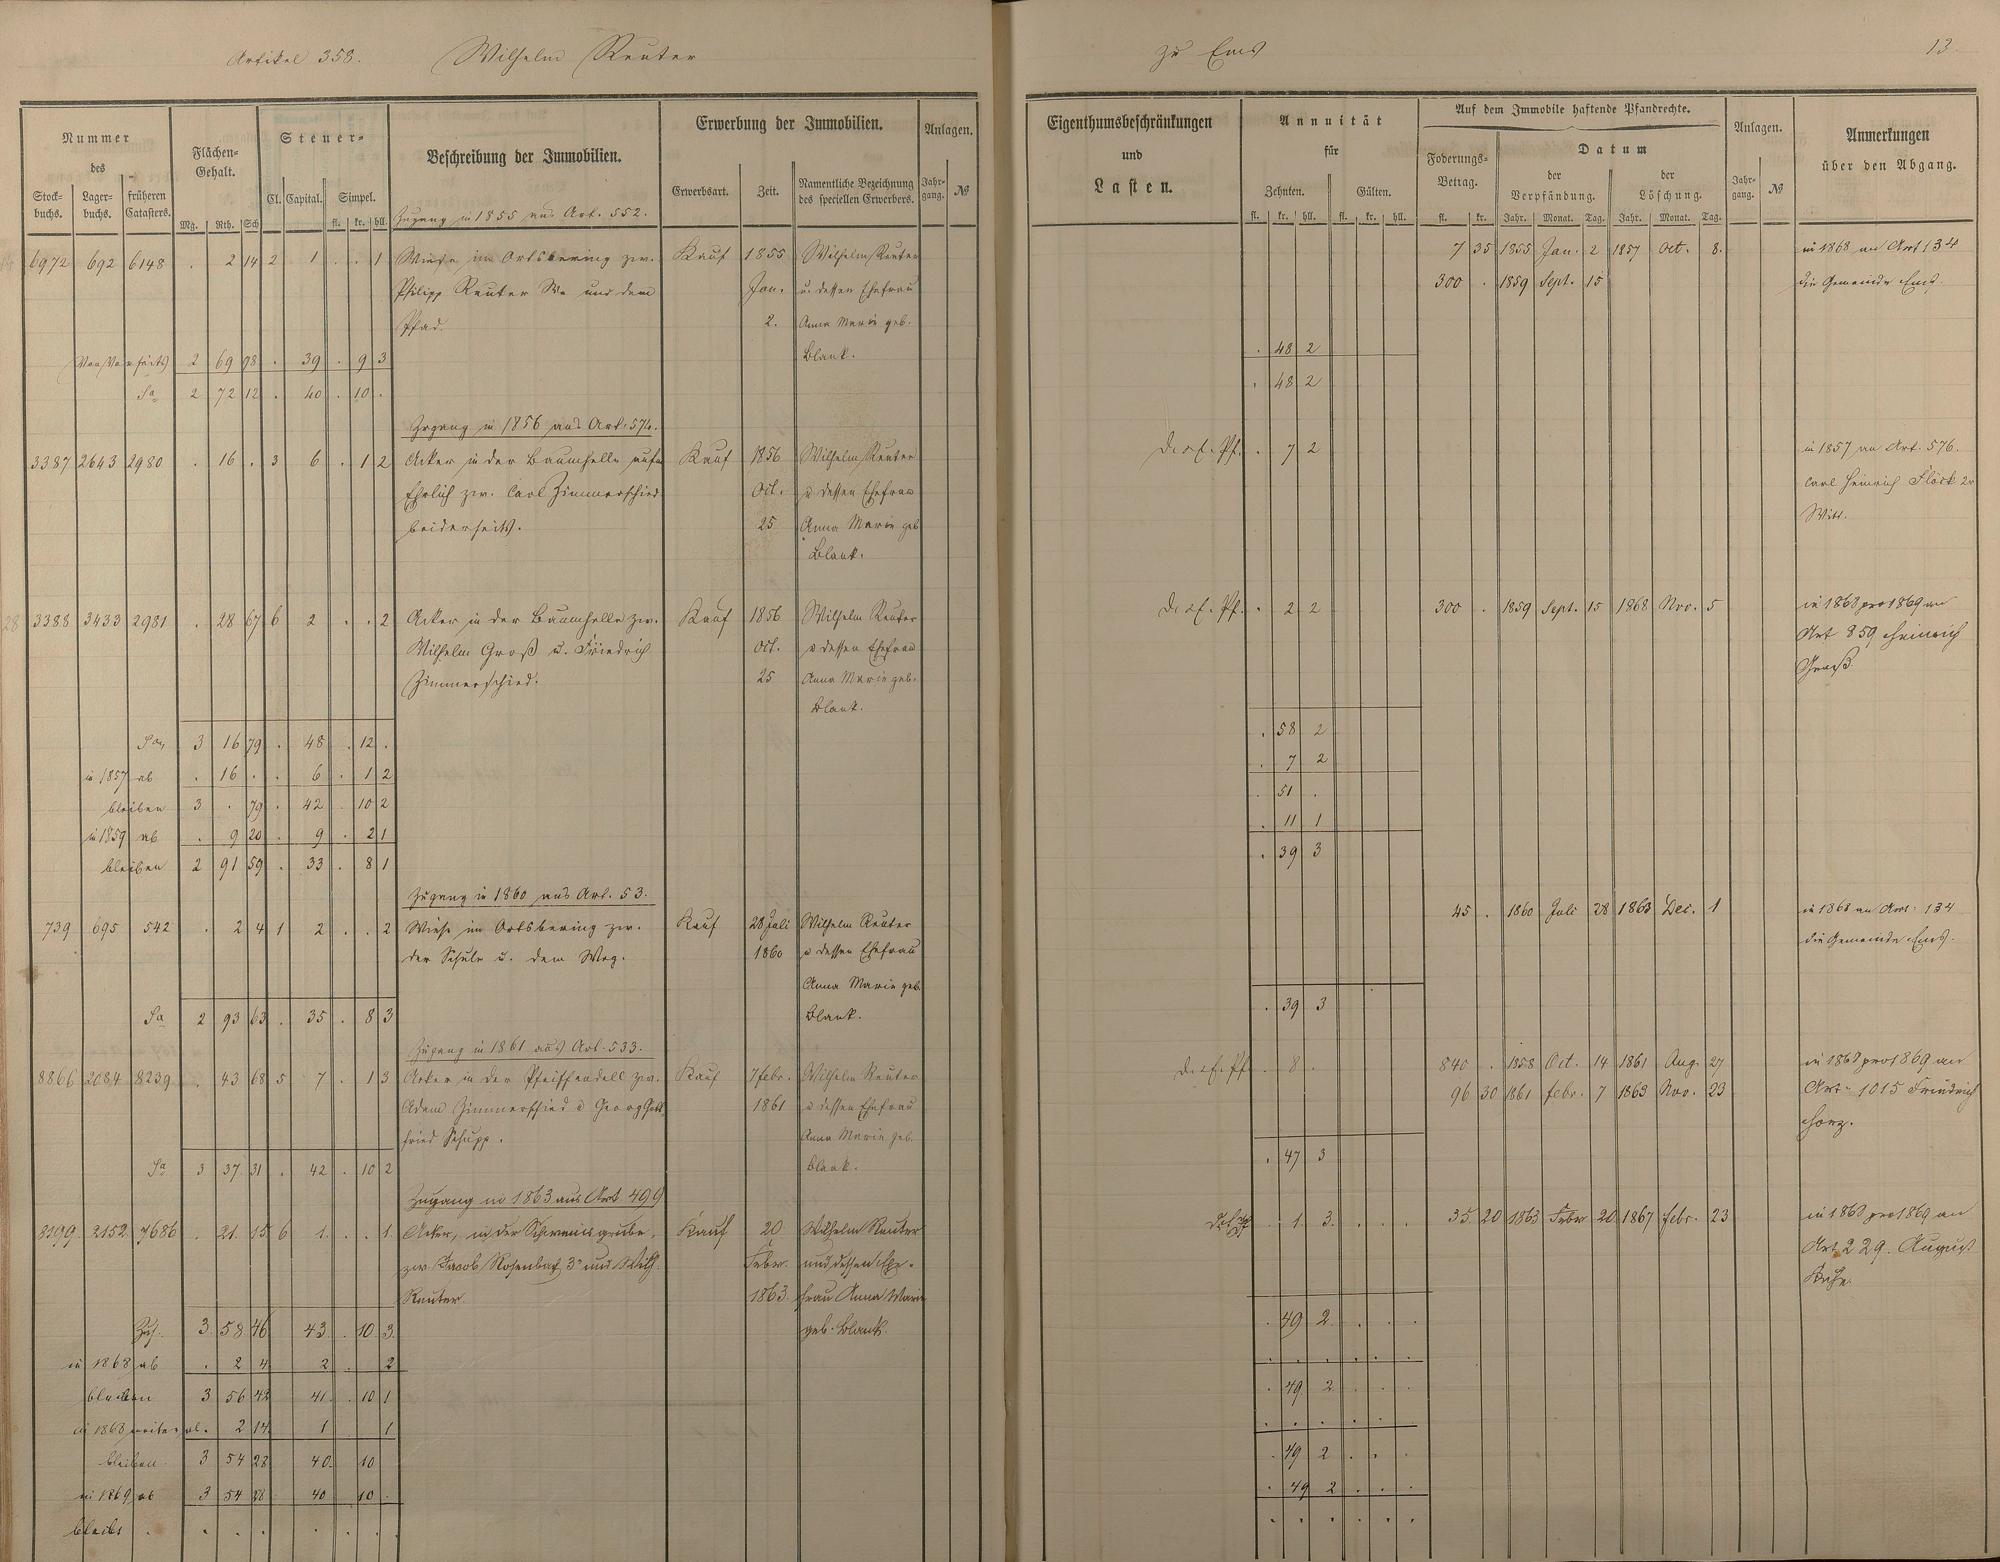 Artikel 358. Wilhelm Reuter
zu Ems 13.
Nummer
des
Stock-buchs. Lager-buchs. früheren Catasters.
Flächen-Gehalt.
Mg. Rth. Sch
Steuer-
Cl. Capital. Simpel.
fl. kr. hll.
Beschreibung der Immobilien.
Erwerbung der Immobilien.
Erwerbsart. Zeit. Namentliche Bezeichnung des speciellen Erwerbers.
Anlagen.
Jahr-gang. №
Eigenthumsbeschränkungen
und
Lasten.
Annuität
für
Zehnten. Gülten.
fl. kr. hll. fl. kr. hll.
Auf dem Immobile haftende Pfandrechte.
Foderungs-Betrag.
fl. kr.
Datum
der Verpfändung. der Löschung.
Jahr. Monat. Tag. Jahr. Monat. Tag.
Anlagen.
Jahr-gang. №
Anmerkungen
über den Abgang.
Zugang in 1855 aus Art. 552.
6972 692 6148 . 2 14 2 1 . . 1 Wiese im Ortsbering zw. Kauf 1855 Wilhelm Reuter 7 35 1855 Jan. 2 1857 Oct. 8. in 1868 an Art 134
Philipp Reuter We und dem Jan. u. dessen Ehefrau 300 . 1859 Sept. 15 die Gemeinde Ems.
Pfad. 2. Anna Marie geb.
Von Vorseits 2 69 98 . 39 . 9 3 Blank. . 48 2
Sa 2 72 12 . 40 . 10 . . 48 2
Zugang in 1856 aus Art. 574.
3387 2643 2980 . 16 . 3 6 . 1 2 Acker in der Baumhelle aufm Kauf 1856 Wilhelm Reuter . 7 2 in 1857 an Art. 576.
Ehrlich zw. Carl Zimmerschied Oct. u dessen Ehefrau Carl Heinrich Flöck 2r
beiderseits. 25 Anna Marie geb Witt.
Blank.
28 3388 3433 2981 . 28 67 6 2 . . 2 Acker in der Baumhelle zw. Kauf 1856 Wilhelm Reuter . 2 2 300 . 1859 Sept. 15 1868 Nov. 5 in 1868 pro 1869 an
Wilhelm Groß u. Friedrich Oct. u dessen Ehefrau Art 859 Heinrich
Zimmerschied. 25 Anna Marie geb. Groß.
Blank.
Sa 3 16 79 . 48 . 12 . . 58 2
in 1857 ab . 16 . . 6 . 1 2 . 7 2
bleiben 3 . 79 . 42 . 10 2 . 51 .
in 1859 ab . 9 20 . 9 . 2 1 . 11 1
bleiben 2 91 59 . 33 . 8 1 . 39 3
Zugang in 1860 aus Art. 53.
739 695 542 . 2 4 1 2 . . 2 Wiese im Ortsbering zw. Kauf 28 Juli Wilhelm Reuter 45 . 1860 Juli 28 1863 Dec. 1 in 1868 an Art. 134
der Schule u. dem Weg. 1860 u dessen Ehefrau die Gemeinde Ems.
Anna Marie geb
Sa 2 93 63 . 35 . 8 3 Blank. . 39 3
Zugang in 1861 aus Art. 533.
8866 2084 8239 . 43 68 5 7 . 1 3 Acker in der Pfeiffendell zw. Kauf 7 febr. Wilhelm Reuter . 8 . 840 . 1858 Oct. 14 1861 Aug. 27 in 1868 pro 1869 an
Adam Zimmerschied u Georg Gott 1861 u dessen Ehefrau 96 30 1861 febr. 7 1863 Nov. 23 Art. 1015 Friedrich
fried Schupp. Anna Marie geb.
Sa 3 37 31 . 42 . 10 2 Blank. . 47 3
Zugang in 1863 aus Art 499
8199 2152 7686 . 21. 15 6 1. . . 1. Acker, in der Schweinsgrube, Kauf 20 Wilhelm Reuter . 1. 3. 35. 20 1863 Febr 20 1867 febr. 23 in 1868 pro 1869 an
zw. Jacob Rosenbach 3r und Wilh. Febr. und dessen Ehe- Art 229. August
Reuter. 1863. frau Anna Marie
3. 58 46 43. . 10 3. geb. Blank. . 49 2. . . .
in 1868 ab . 2 4 2 . 2
bleiben 3 56 42 41. . 10 1 . 49 2 . . .
in 1868 weiter ab. 2 14 1 1
bleiben 3 54 28 40. 10 . 49 2 . . .
in 1869 ab 3 54 28 40 10 . . 49 2 . . .
bleibt . . . . . . . .